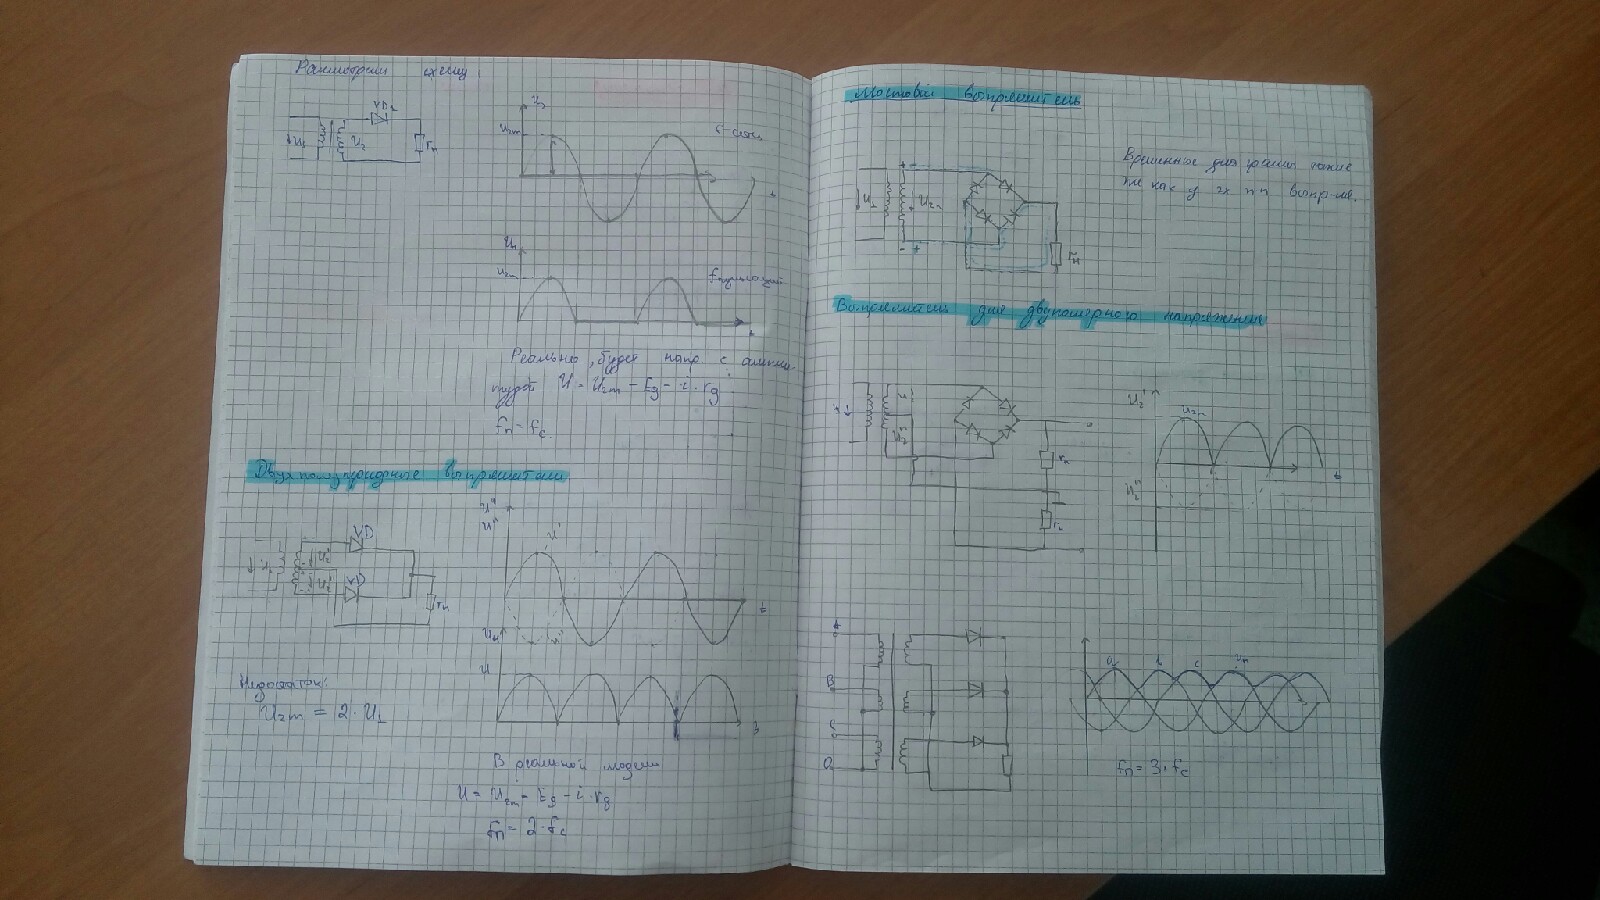 Рассмотрим схему
VD1
U1
U2
rн
U2
U2m
t
Uн
U2m
fпульсаций
t
Реально, будет напр. с ампли-
тудой U = U2m - Eg - i · rg
fп = fc
Двухполупериодные выпрямители
VD
U1
U2'
U2"
VD
rн
U'
U"
U'
U"
t
Uн
U
t
Недостаток:
U2m = 2 · U1
В реальной модели
U = U2m - Eg - i · rg
fп = 2 · fc
Мостовой выпрямитель
Временное диаграммы такие
же как у 2х пп выпр-ля.
+ -
U1
U2m
- +
rн
Выпрямитель для двуполярного напряжения
U2"
rн
rн
U2'
U2m
t
U2"
A
B
C
O
a
b
c
Uп
fп = 3 · fc